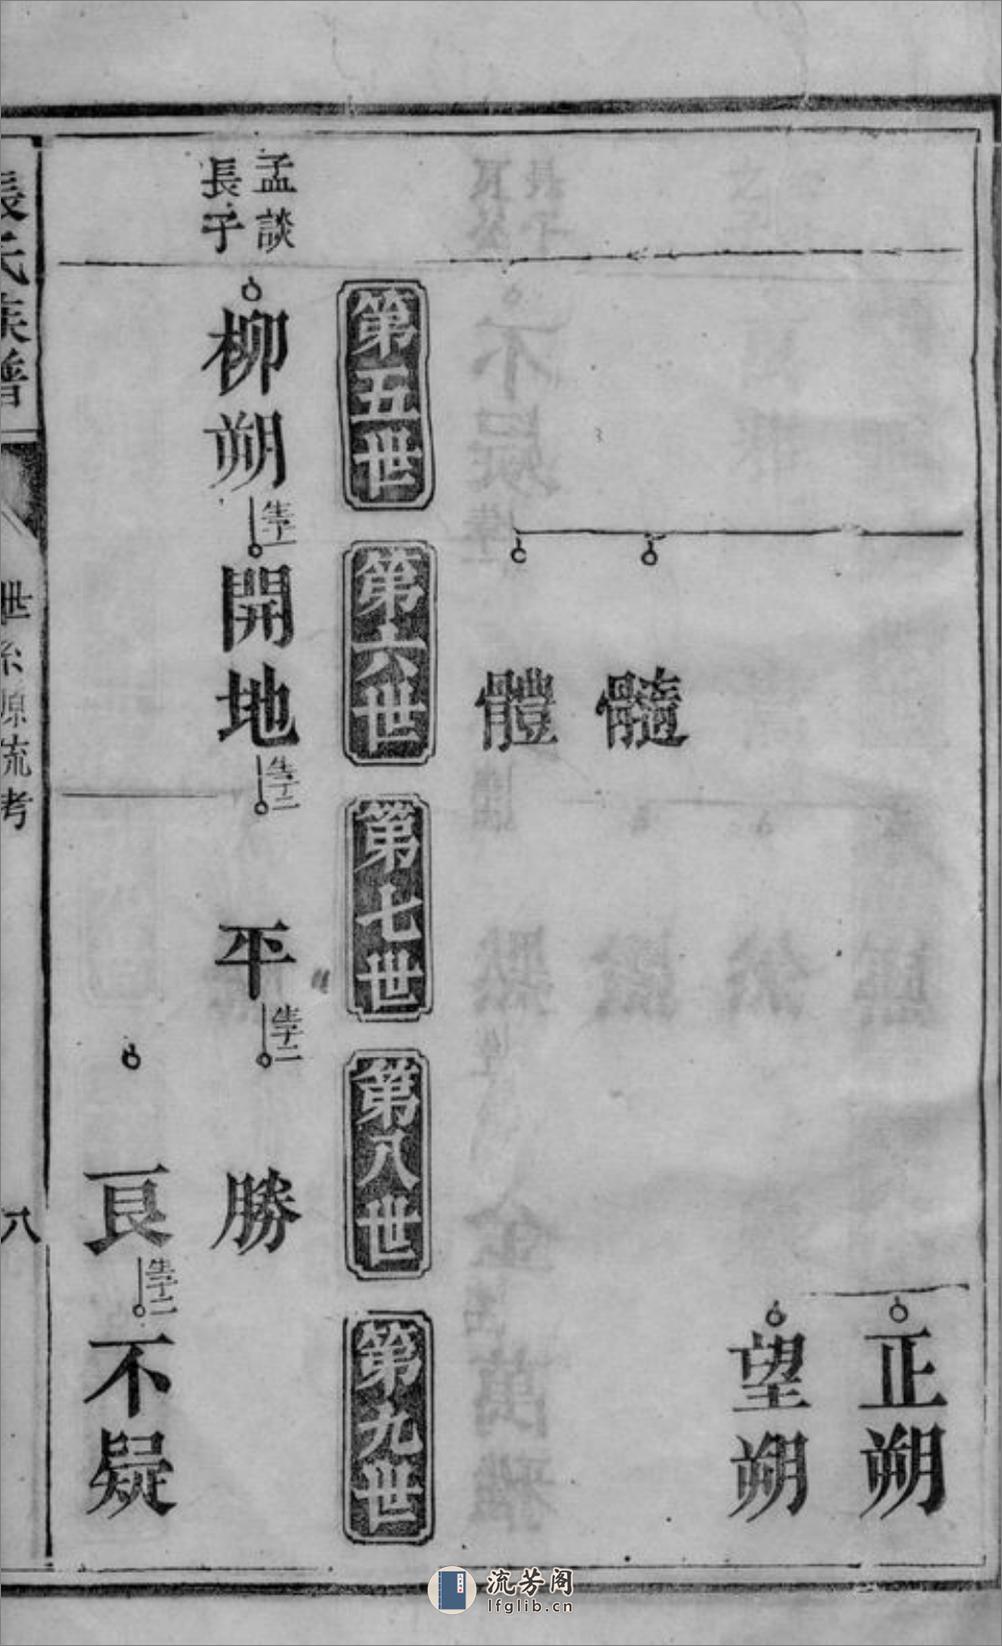 正朔
望朔
髓
體
第五世
第六世
第七世
第八世
第九世
孟談
長子
柳朔
生子一
開地
生子二
平
生子二
勝
良
生子二
不疑
張氏族譜
世系源流考
八
流芳阁
lfglib.cn